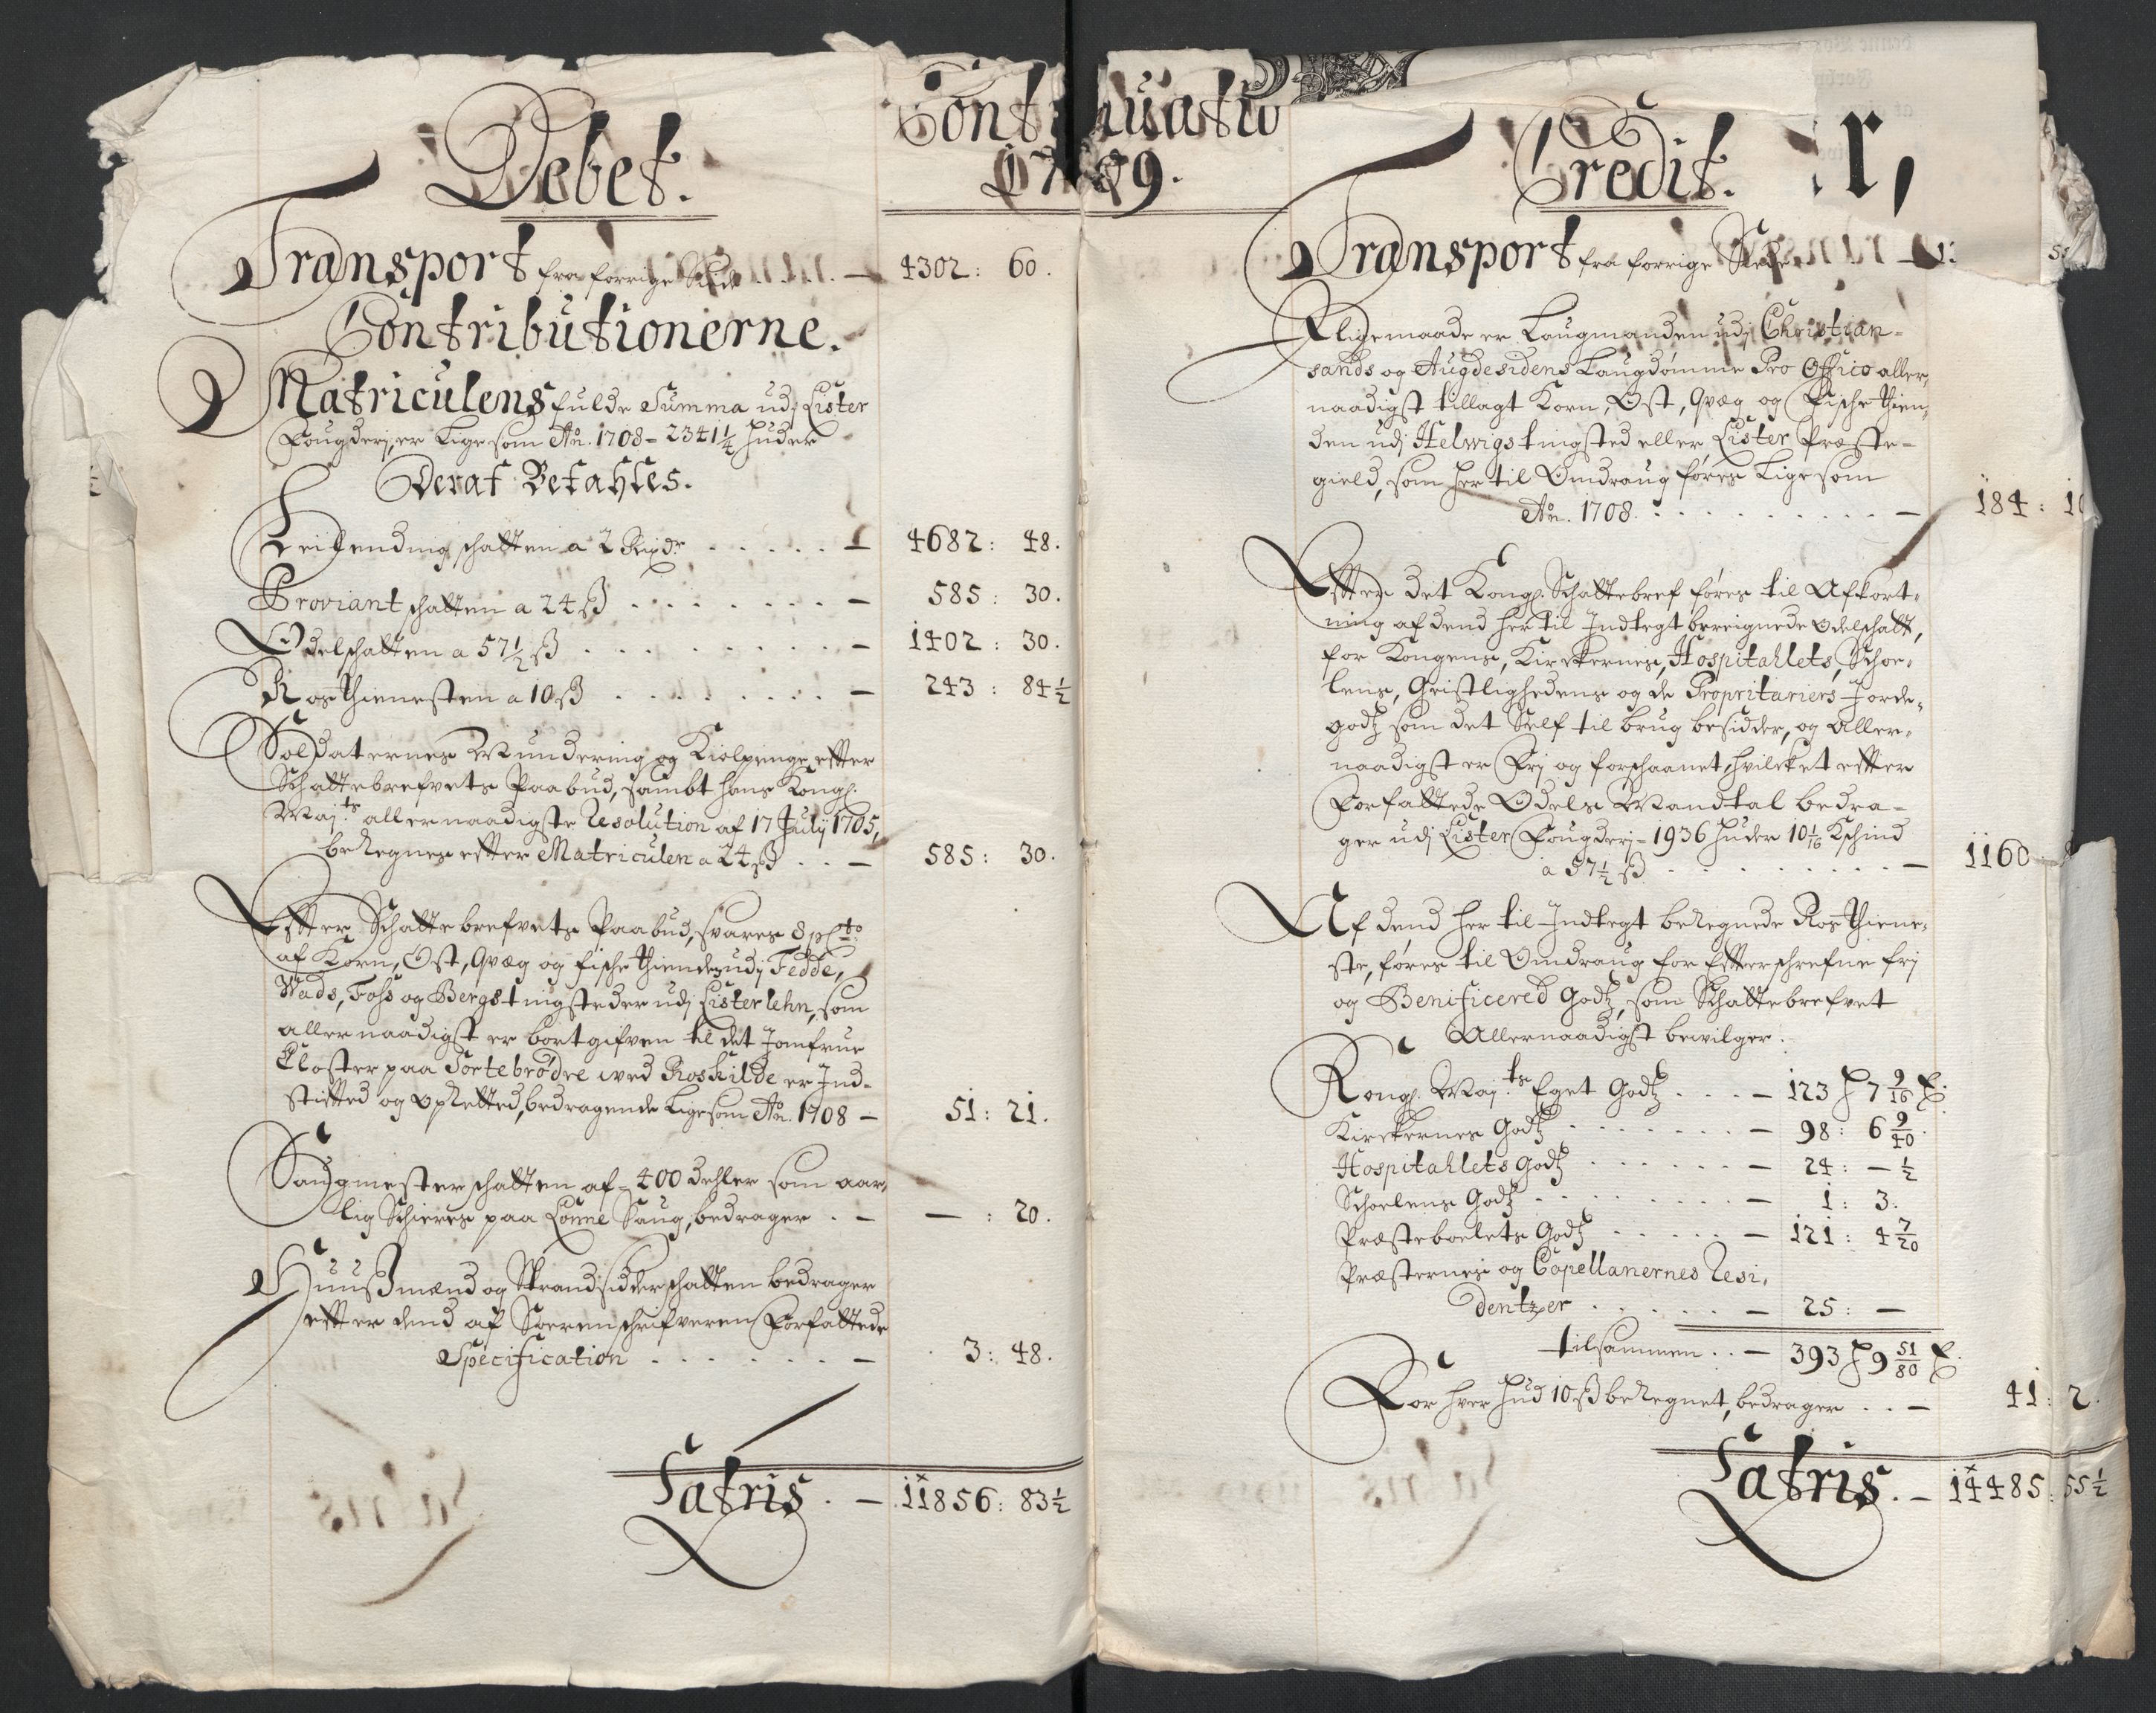 Continuatio
1709.
Debet.
Transport fra forrige Side . . . . — 4302 : 60.
Contributionerne.
Matriculens fulde Summa udj Lister
Fougderj, er Lige som Aõ. 1708 - 2341 1/4 Huder
Deraf Betahles.
Leilending schatten a 2 Rixdr . . . . . — 4682 : 48.
Proviant schatten a 24 ß . . . . . . . — 585 : 30.
Odelschatten a 57 1/2 ß . . . . . . . . — 1402 : 30.
Ros thienesten a 10 ß . . . . . . . — 243 : 84 1/2
Soldaternes Mundering og Kiolpenge effter
Schattebrefvets Paabud, sambt hans Kongl.
Maj.ts allernaadigste Resolution af 17 Julij 1705,
beregnes effter Matriculen a 24 ß . . — 585 : 30.
Effter Schattebrefvets Paabud, svares 8 pCto
af Korn, Ost, Qvæg og fische thienden udj Fedde,
Wads, Foss og Bergs tingsteder udj Lister lehn, som
allernaadigst er bortgifven til det Jomfrue
Closter paa Sortebrødre wed Roskilde er Ind-
stifted og opretted, bedragende Lige som Aõ. 1708 — 51 : 21.
Saugmester schatten af - 400 dehler som aar,
lig Schieres paa Lonne Saug, bedrager . — — : 20.
Huusmænd og Strandsidder schatten bedrager
effter dend af Sorenschrifveren Forfattede
Specification . . . . . . . — 3 : 48.
Latris . — 11856 : 83 1/2
Credit.
r,
Transport fra forrige Side
Lligemaade er Laugmanden udj Christian-
sands og Augdesidens Laugdømme Pro Officio aller,
naadigst tillagt Korn, Ost, Qvæg og Fische thien,
den udj Helwigs tingsted eller Lister Præste-
gield, som her til Omdraug føres Lige som
Aõ. 1708. . . . . . . . . . — 184 : 1
Effter det Kongl. Schattebref føres til Afkort-
ning af dend her til Indtegt beregnede odelschatt,
for Kongens, Kirckernes, Hospitahlets, Schoe-
lens, Geistlighedens og de Propritariers Jorde-
godtz som det Self til brug besidder, og Aller-
naadigst er Frj og forschaanet, hvilcket effter
Forfattede Odels Mandtal bedra-
ger udj Lister Fougderj - 1936 Huder 10 1/16 Kschind
a 57 1/2 ß . . . . . . . . — 1160
Af dend her til Indtegt beregnede Ros thiene-
ste, føres til Omdraug for Effterschrefne frj
og Benificered Godtz, som Schattebrefvet
Allernaadigst bewilger.
Kongl. Maj.ts Eget Godtz . . . — 123 H 7 9/16 X.
Kirckernes Godtz . . . . . . . — 98 : 6 9/40.
Hospitahlets Godtz . . . . . . — 24 : — 1/2
Schoelens Godtz . . . . . . . . — 1 : 3.
Præsteboelets Godtz . . . . . — 121 : 4 7/20
Præsternes og Capellanernes Resi,
dentzer . . . . . — 25 : —
tilsammen . . — 393 H 9 51/80 X.
For hver Hud 10 ß beregnet, bedrager . . — 41 : 2.
Latris. — 14485 : 55 1/2